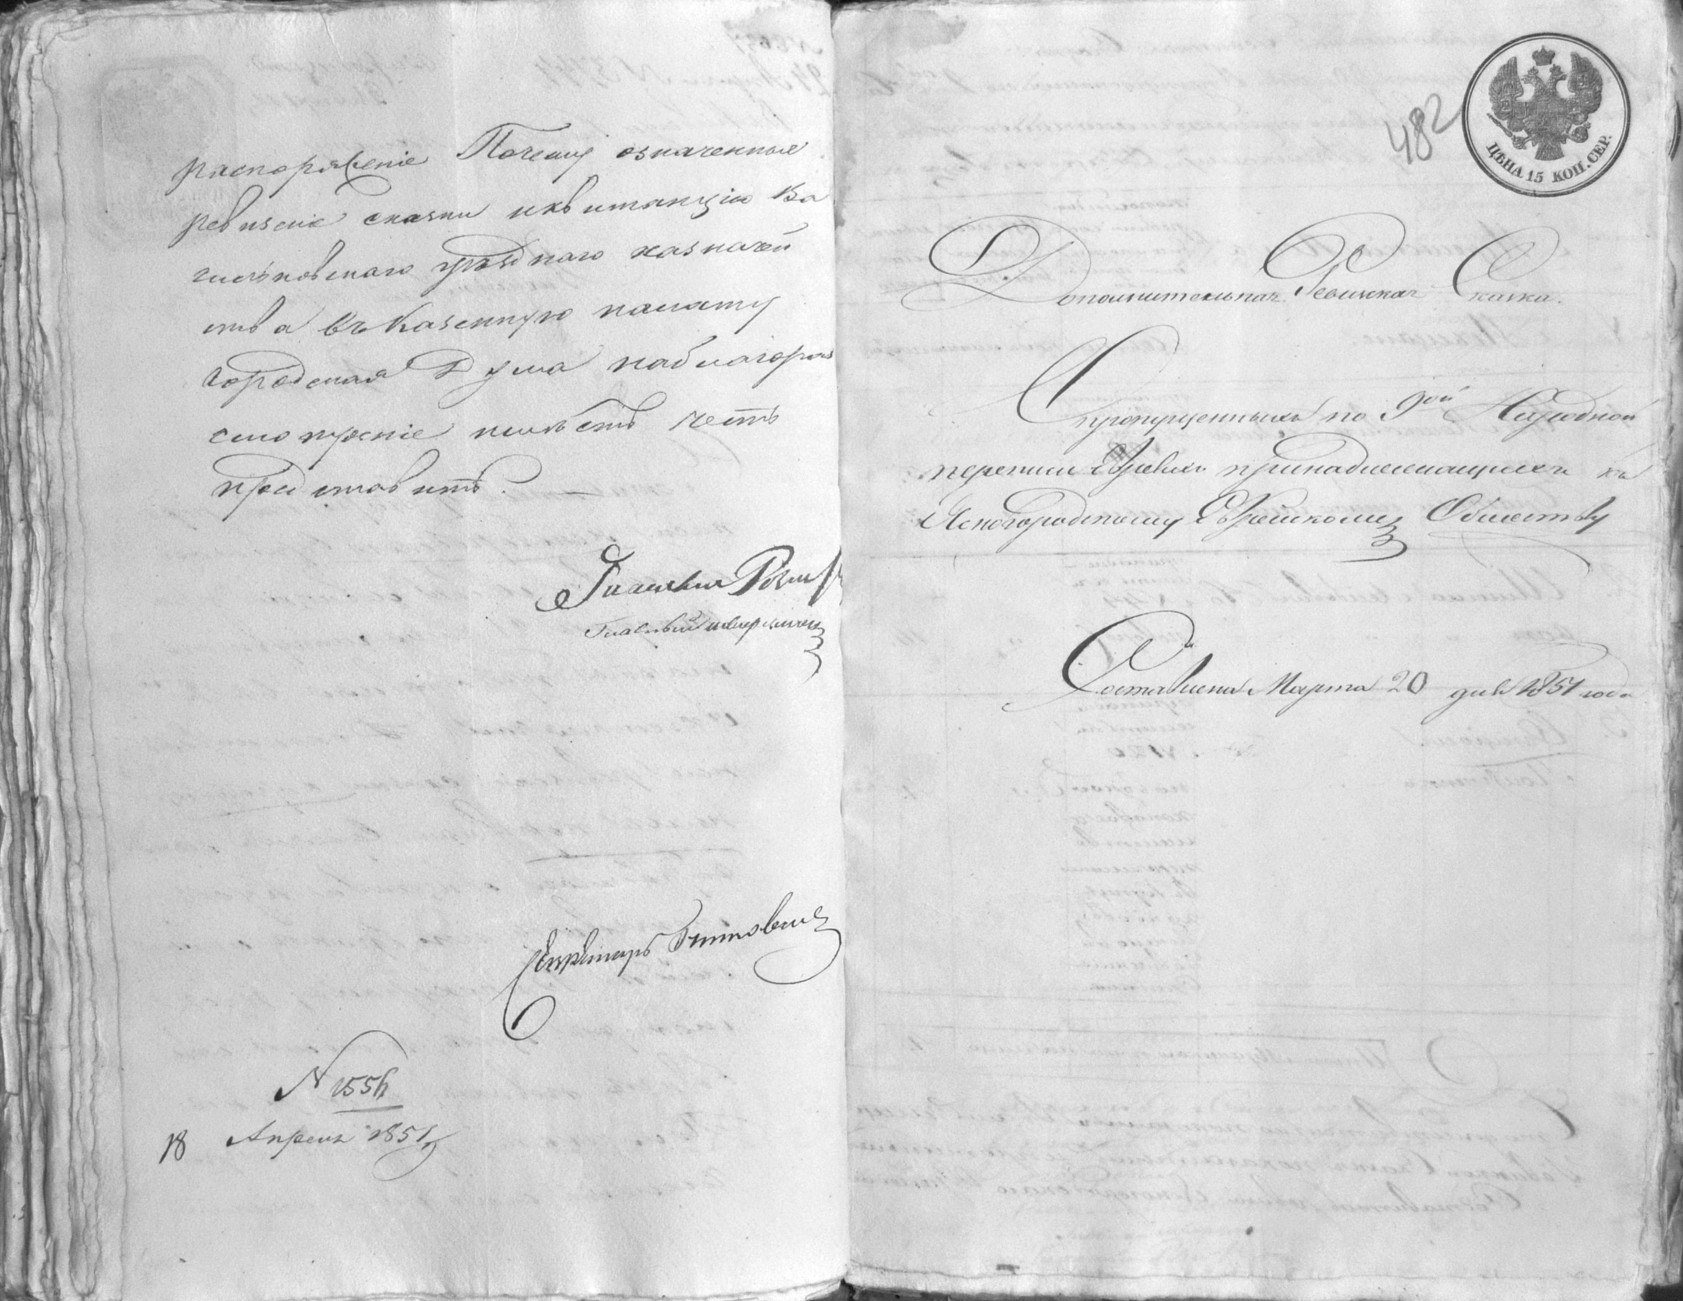 распоряженіе Почему означенные
ревизскіе сказки и квитанцію Ва
сильковскаго уѣзднаго казначей
ства въ Казенную палату
городская Дума на благорас
смотреніе имѣетъ честь
представить.
Гласный
Гласный
Секретарь
N 1556
18 Апреля 1851
482
ЦѢНА 15 КОП. СЕР.
Дополнительная Ревизская Сказка.
О пропущенныхъ по 9ой Народной
переписи Евреяхъ принадлежащихъ къ
Ясногородскому Еврейскому Обществу
Составлена Марта 20 дня 1851 года